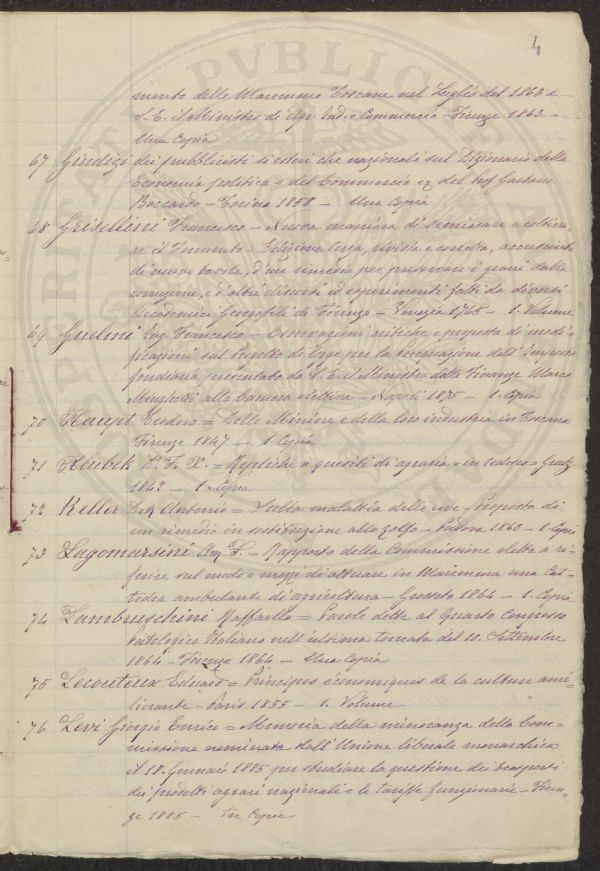 4
mento delle Maremme Toscane nel Luglio del 1863 a
S. E. il Ministro di Agr. Ind. e Commercio - Firenze 1863 -
Una Copia
67 Giudizi dei pubblicisti sì esteri che nazionali sul Dizionario della
Economia politica e del Commercio del Prof Gaetano
Boccardo - Torino 1858 - Una Copia
68 Griselini Francesco - Nuova maniera di seminare e coltiva-
re il Formento - Edizione terza, rivista e corretta, accresciuta
di nuove tavole, d'un rimedio per preservare i grani dalla
corruzione, e d'altri discorsi ed esperimenti fatti da diversi
Accademici Georgofili di Firenze - Venezia 1765 - 1. Volume
69 Guelmi Ing. Francesco - Osservazioni critiche e proposta di modi-
ficazioni sul Progetto di legge per la Perequazione dell'Imposta
fondiaria presentato da S. E. il Ministro delle Finanze Marco
Minghetti alla Camera elettiva - Napoli 1875 - 1. Copia
70 Haupt Teodoro = Delle Miniere e della loro industria in Toscana
Firenze 1847 - 1 Copia
71 Hlubek D. F. X. = Repliche a quesiti di agraria = in tedesco = Gratz
1842 - 1. Copia
72 Keller D.r Antonio = Sulla malattia delle uve - Proposta di
un rimedio in sostituzione allo zolfo - Padova 1860 - 1. Copia
73 Lagomarsini = Rapporto della Commissione eletta a ri-
ferire sul modo e mezzi di attuare in Maremma una Cat-
tedra ambulante di agricoltura - Grosseto 1864 - 1. Copia
74 Lambruschini Raffaello = Parole dette al Quarto Congresso
Patologico Italiano nell'ultima tornata del 10. Settembre
1864 - Firenze 1864 - Una Copia
75 Lecouteux Edouard = Principes économiques de la culture amé-
liorante - Paris 1855 - 1. Volume
76 Levi Giorgio Enrico = Memoria della minoranza della Com-
missione nominata dall'Unione liberale monarchica
il 18. Gennaio 1885 per studiare la questione dei trasporti
dei prodotti agrari nazionali e le tariffe - Firen-
ze 1885 - Tre Copie